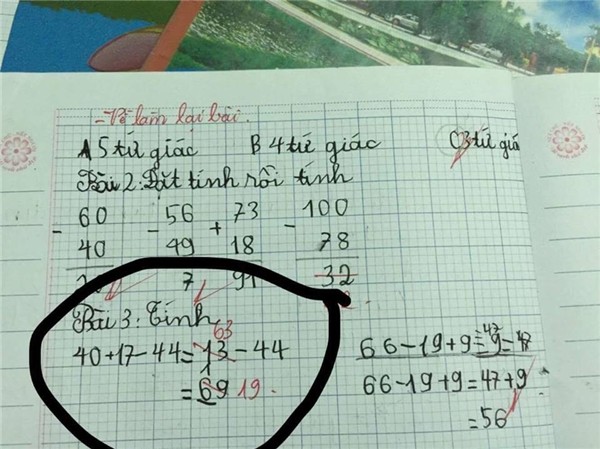 - Về làm lại bài.
A 5 tứ giác B 4 tứ giác C 3 tứ giá
Bài 2: Đặt tính rồi tính
- 60 - 56 + 73 - 100
40 49 18 78
7 91 32
Bài 3: Tính
63
40+17-44=13-44
=69 19.
66-19+9=
66-19+9=47+9
=56